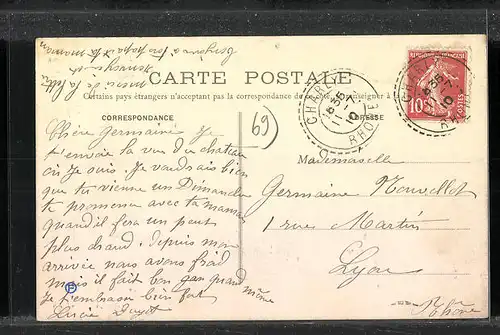 CARTE POSTALE
Certains pays étrangers n'acceptent pas la correspondance
CORRESPONDANCE
ADRESSE
Chère Germaine Je
t'envoie la vue du chateau
où Je suis. Je vaudrais bien
que tu vienne un Dimanche
te promener avec ta maman
quand il fera un peut
plus chaud, depuis mon
arrivée nous avons froid
mais il fait bon quand même
Je t'embrasse bien fort
Lucie
69
CHAR
8 35
7
10
RHONE
10
POSTES
Mademoiselle
Germaine Nouvellet
1 rue Martin
Lyon
Rhône